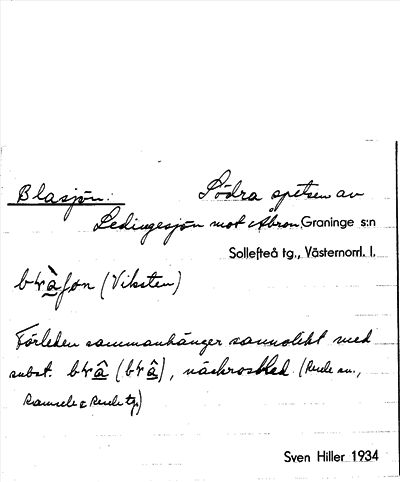 Blasjön: Södra spetsen av
Ledingesjön mot Åbron, Graninge s:n
Sollefteå tg., Västernorrl. l.
(Viksten)
Förleden sammanhänger sannolikt med
subst. näckrosblad (Resele sn.,
Ramsele & Resele tg.)
Sven Hiller 1934